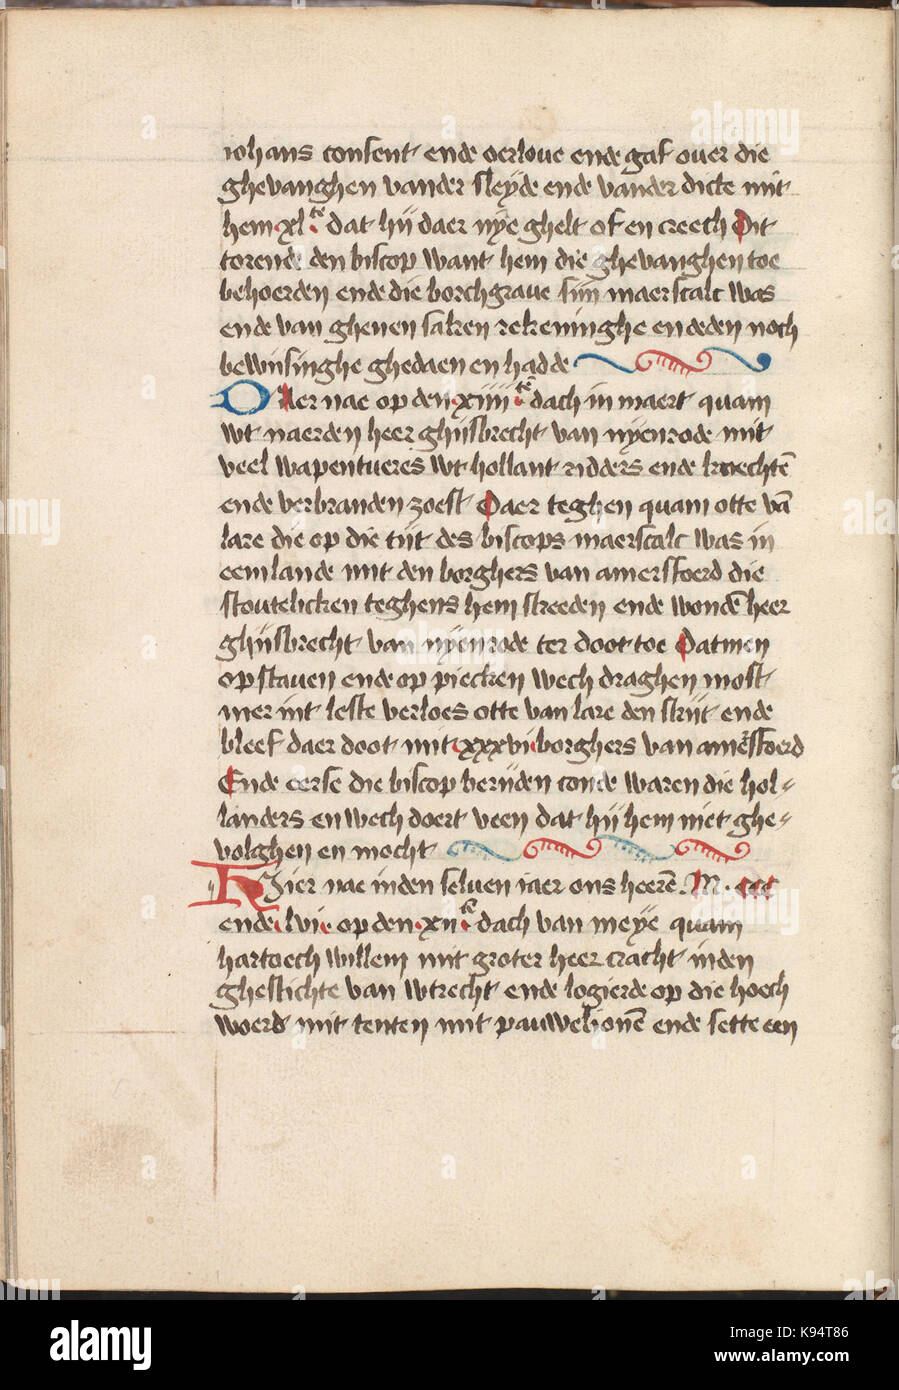 iohans consent ende oerlove ende gaf over die
ghevanghen vander sleyde ende vander dicte mit
hem xl te dat hij daer nye ghelt of en creech Dit
torende den biscop want hem die ghevanghen toe
behoerden ende die borchgrave sijn maerscalc was
ende van ghenen saken rekeninghe en deden noch
bewinsinghe ghedaen en hadde
Daer nae op den xiiii te dach in maert quam
wt naerden heer ghijsbrecht van nyenrode mit
veel wapentueres wt hollant ridders ende knechtē
ende verbranden zoest Daer teghen quam otte vā
lare die op die tijt des biscops maerscalc was in
eemlande mit den borghers van amersfoerd die
stoutelicken teghens hem streden ende wondē heer
ghijsbrecht van nyenrode ter doot toe Datmen
op staven ende op piecken wech draghen most
mer int leste verloes otte van lare den strijt ende
bleef daer doot mit xxxvi borghers van amersfoerd
Ende eerse die biscop berijden conde waren die hol-
landers en wech doert veen dat hij hem niet ghe-
volghen en mocht
Hier nae inden selven iaer ons heerē M ccc
ende lvi op den xii te dach van meye quam
hartoech willem mit groter heer cracht inden
ghestichte van wtrecht ende logierde op die hoech
woerd mit tenten mit pauwelionē ende sette een
alamy
alamy
alamy
alamy
alamy
Image ID: K94T86
www.alamy.com